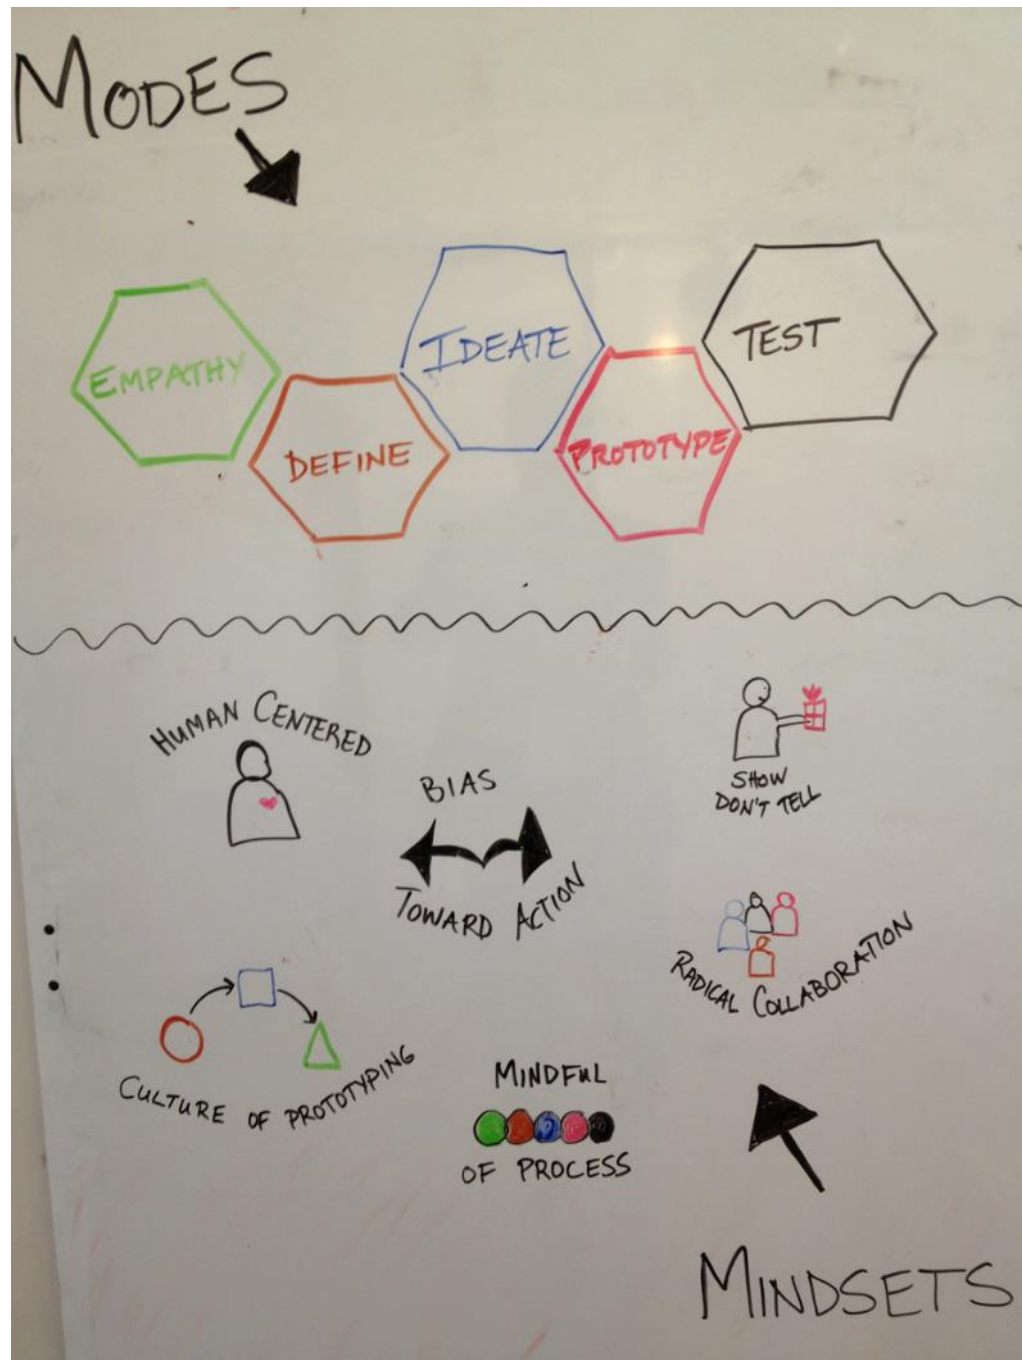 MODES
EMPATHY
DEFINE
IDEATE
PROTOTYPE
TEST
HUMAN CENTERED
BIAS
TOWARD ACTION
SHOW
DON'T TELL
RADICAL COLLABORATION
CULTURE OF PROTOTYPING
MINDFUL
OF PROCESS
MINDSETS